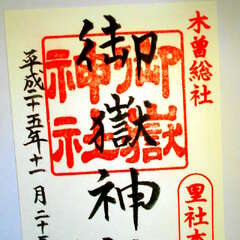 木曽総社
御嶽神
御嶽
神社
里社本
平成二十五年十一月二十五